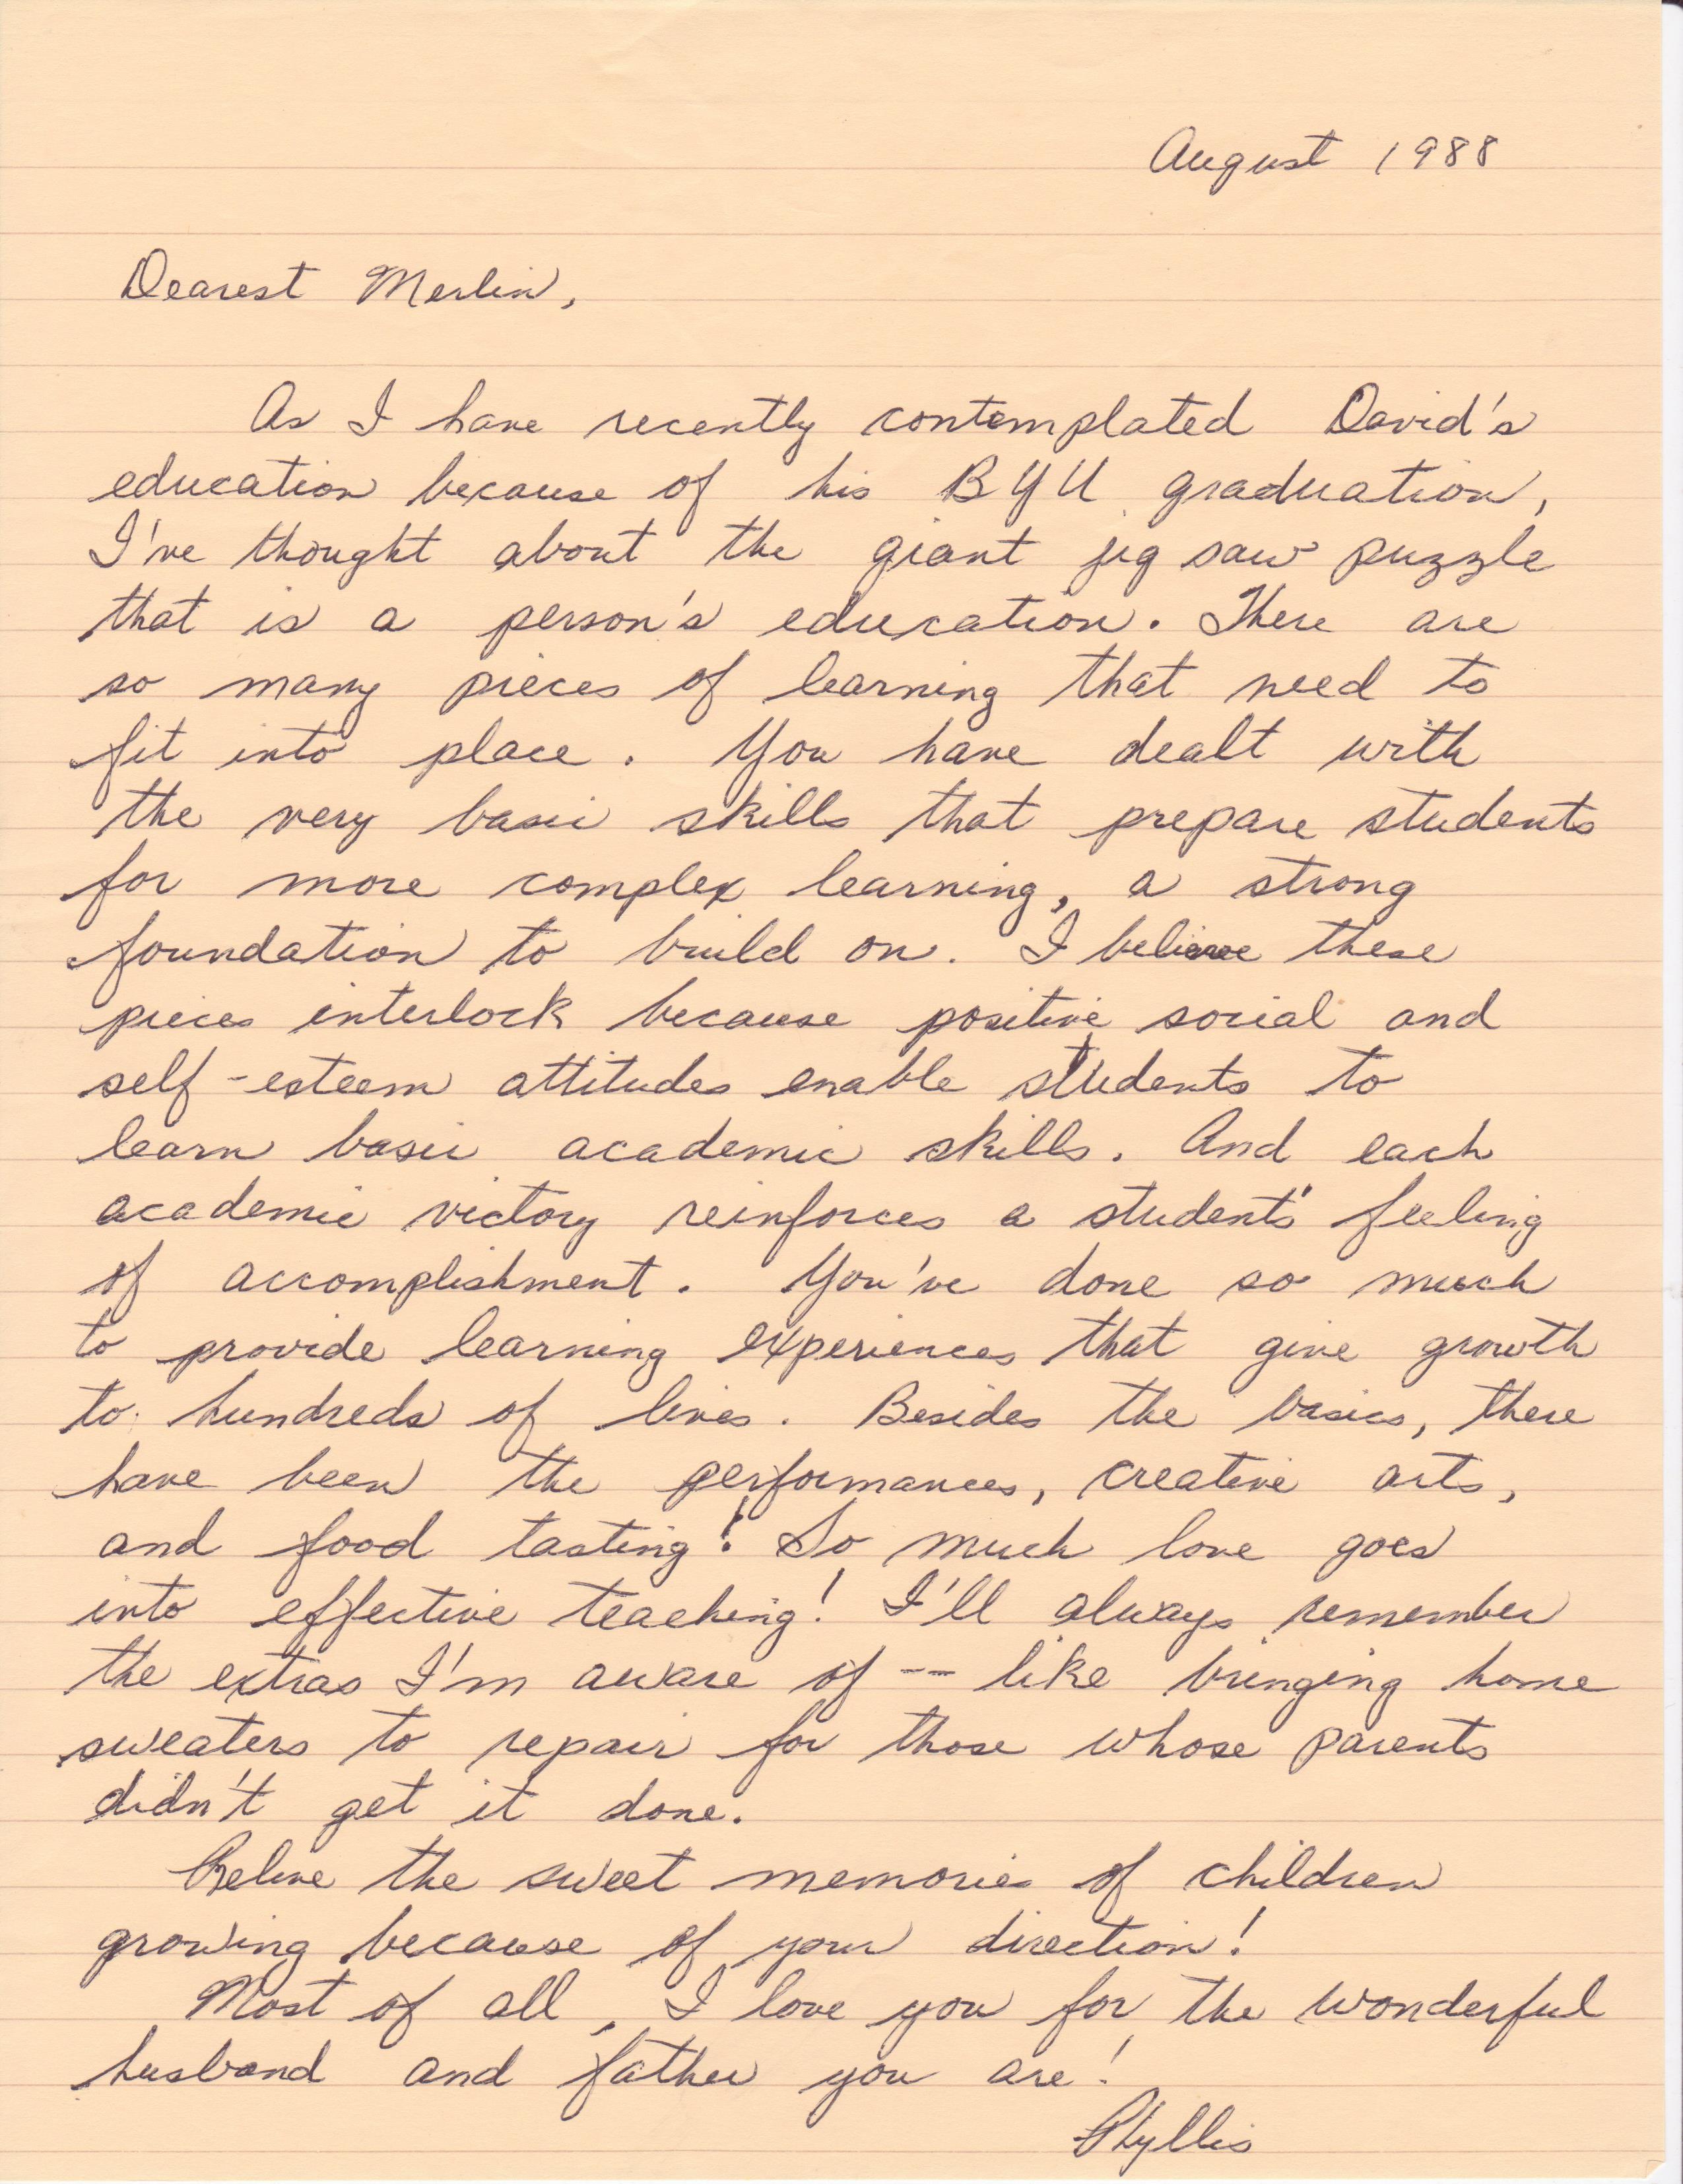 August 1988
Dearest Merlin,
As I have recently contemplated David's
education because of his BYU graduation,
I've thought about the giant jig saw puzzle
that is a person's education. There are
so many pieces of learning that need to
fit into place. You have dealt with
the very basic skills that prepare students
for more complex learning, a strong
foundation to build on. I believe these
pieces interlock because positive social and
self-esteem attitudes enable students to
learn basic academic skills. And each
academic victory reinforces a students' feeling
of accomplishment. You've done so much
to provide learning experiences that give growth
to hundreds of lives. Besides the basics, there
have been the performances, creative arts,
and food tasting! So much love goes
into effective teaching! I'll always remember
the extras I'm aware of -- like bringing home
sweaters to repair for those whose parents
didn't get it done.
Relive the sweet memories of children
growing because of your direction!
Most of all, I love you for the wonderful
husband and father you are!
Phyllis